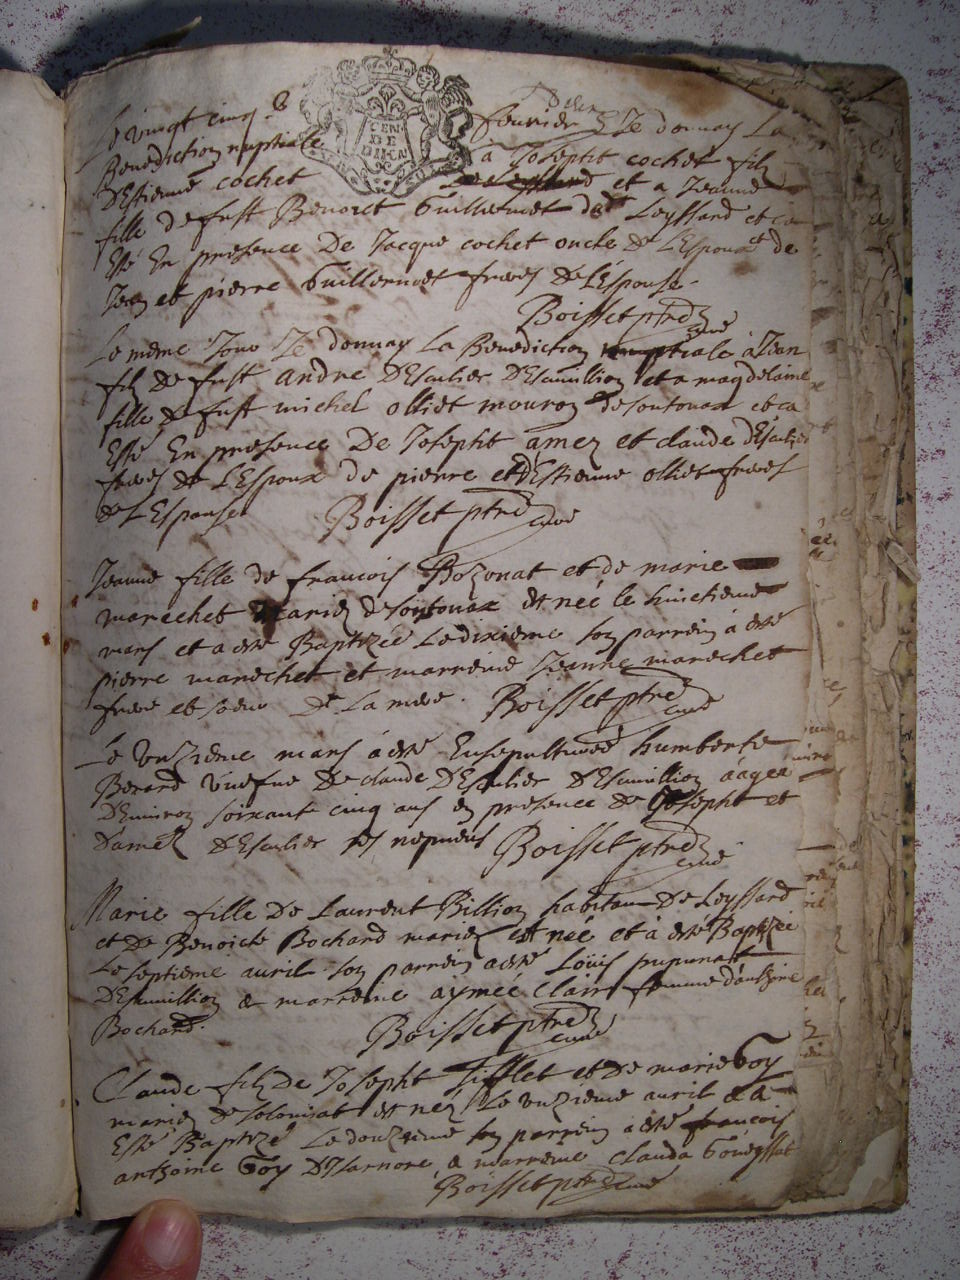 Le vingt cinq.e fevrier Je donnay La
Benediction nuptiale a Josepht cochet filz
dEstienne cochet et a Jeanne
fille de fust Benoict Guillermet de Leyssard et ca
Esté En presence De Jacque cochet oncle de LEspoux et de
Jean et pierre Guillermet freres de LEspouse.
Boisset ptre curé
Le meme Jour Je donnay La Benediction nuptiale à Jean
filz de fust andre DEscusier DEsmillion et a magdelaine
fille de fust michel olliet mouron de Soutonax et ca
Esté En presence De Josepht amez et claude
freres de LEspoux de pierre et dEstienne olliet freres
de LEspouse Boisset ptre curé
Jeanne fille de francois Bozonat et de marie
marechet mariez de Soutonax et née le huictieme
mars et a esté Baptizée Le dixieme son parrein à esté
pierre marechet et marreine Jeanne marechet
frere et soeur De La mere. Boisset ptre curé
Le Unzieme mars à esté Ensepulturée humberte
Berard vuefue De claude DEscusier DEsmillion aagée
DEnviron soixante cinq ans en presence de Josepht et
Damez DEscusier ses nepueus Boisset ptre curé
Marie fille De Laurent Billion habitant De Leyssard
et De Benoicte Bochard mariez est née et à esté Baptizée
Le septieme auril son parrein a esté Loüis
DEsmillion & marreine aymée Clair femme danthoine
Bochard.
Boisset ptre curé
Claude filz De Josepht Sifflet et de marie Goy
mariez de Solonisat est nez Le unzieme auril & à
Esté Baptizé Le douzieme son parrein à esté francois
anthoine Goy DIsarnore & marreine Clauda
Boisset ptre curé